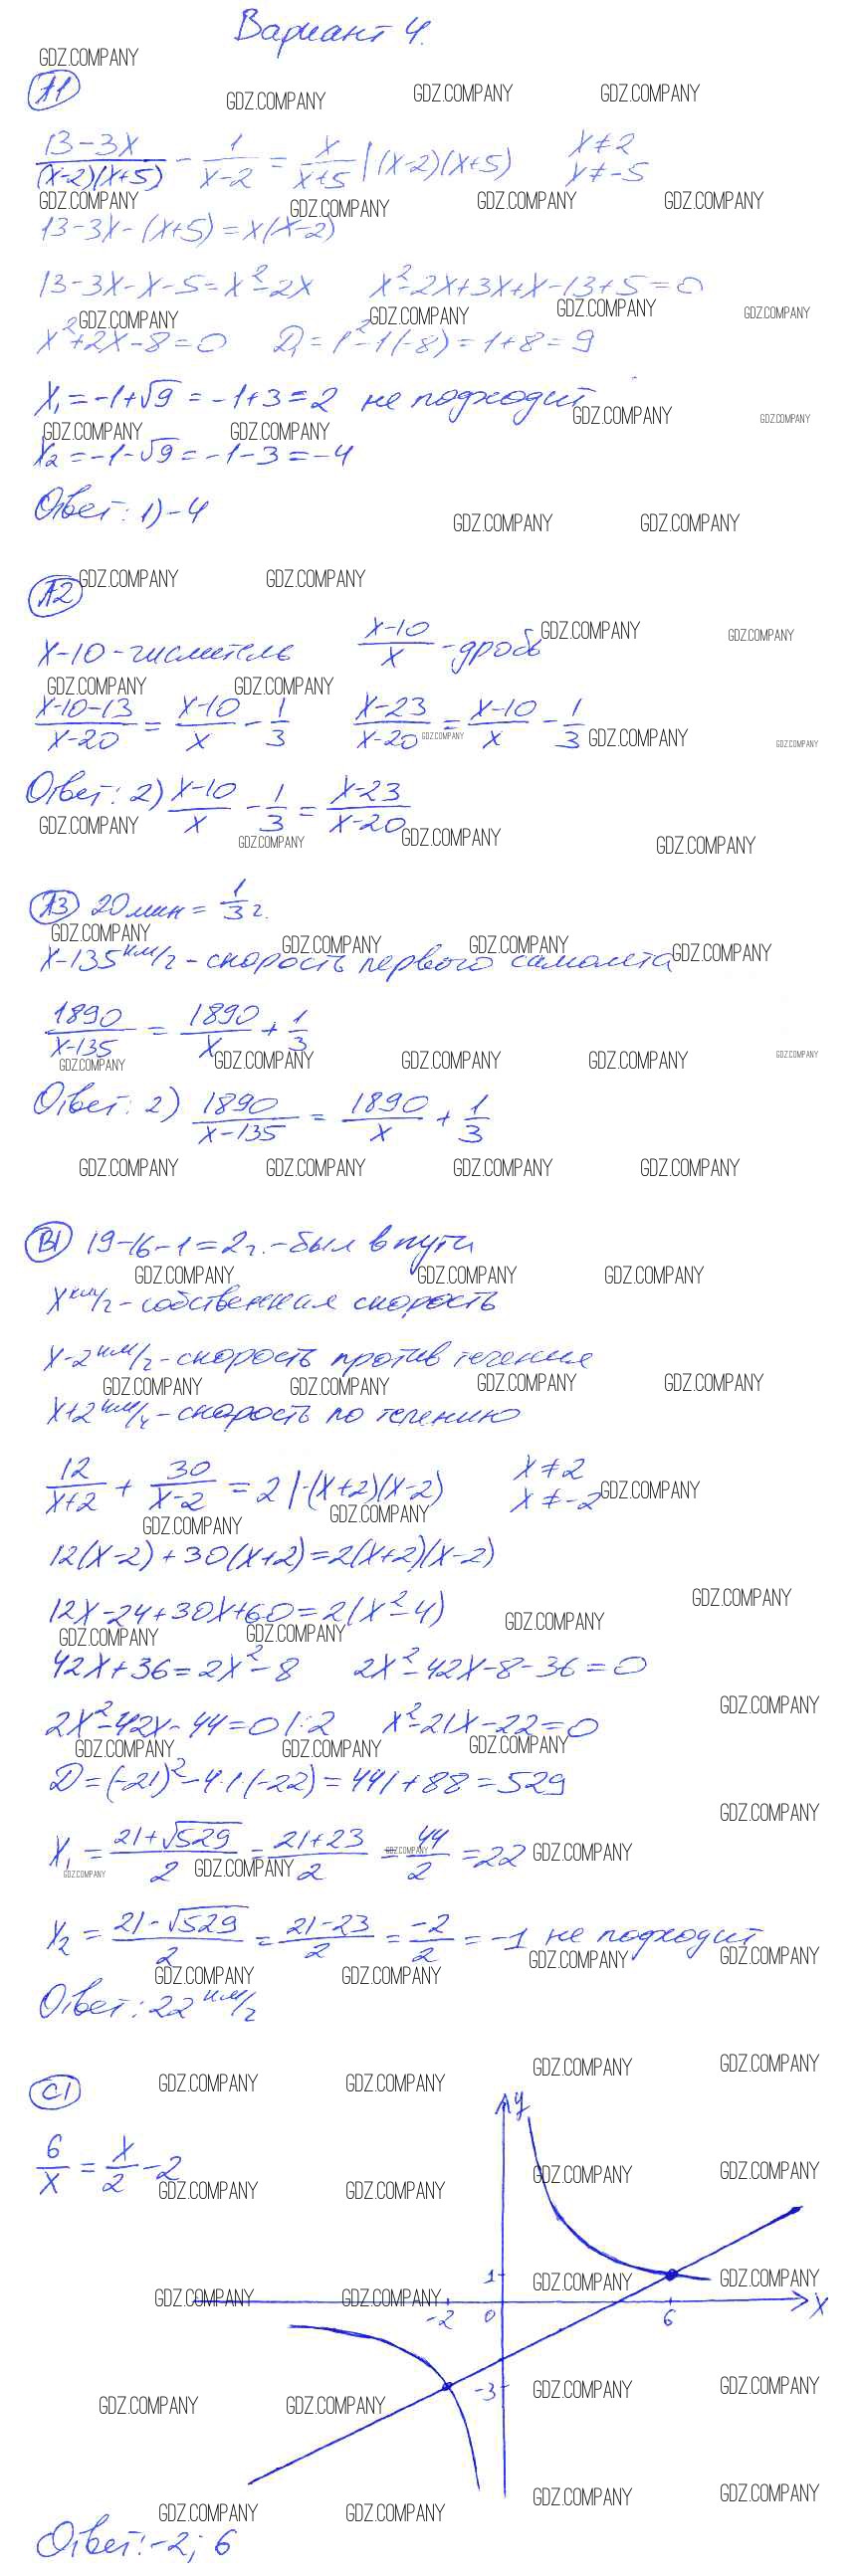 Вариант 4.
GDZ.COMPANY
А1
GDZ.COMPANY GDZ.COMPANY GDZ.COMPANY
(13-3x)/((x-2)(x+5)) - 1/(x-2) = x/(x+5) |(x-2)(x+5) x≠2
x≠-5
GDZ.COMPANY GDZ.COMPANY GDZ.COMPANY GDZ.COMPANY
13-3x-(x+5)=x(x-2)
13-3x-x-5=x²-2x x²-2x+3x+x-13+5=0
GDZ.COMPANY GDZ.COMPANY GDZ.COMPANY GDZ.COMPANY
x²+2x-8=0 D₁=1²-1(-8)=1+8=9
x₁=-1+√9=-1+3=2 не подходит
GDZ.COMPANY GDZ.COMPANY
GDZ.COMPANY GDZ.COMPANY
x₂=-1-√9=-1-3=-4
Ответ: 1)-4
GDZ.COMPANY GDZ.COMPANY
А2 GDZ.COMPANY GDZ.COMPANY
x-10-числитель (x-10)/x -дробь
GDZ.COMPANY GDZ.COMPANY
GDZ.COMPANY GDZ.COMPANY
(x-10-13)/(x-20) = (x-10)/x - 1/3 (x-23)/(x-20) = (x-10)/x - 1/3
GDZ.COMPANY GDZ.COMPANY GDZ.COMPANY
Ответ: 2) (x-10)/x - 1/3 = (x-23)/(x-20)
GDZ.COMPANY GDZ.COMPANY GDZ.COMPANY GDZ.COMPANY
А3 20мин = 1/3 ч.
GDZ.COMPANY GDZ.COMPANY GDZ.COMPANY GDZ.COMPANY
x-135 км/ч - скорость первого самолета
1890/(x-135) = 1890/x + 1/3
GDZ.COMPANY GDZ.COMPANY GDZ.COMPANY GDZ.COMPANY GDZ.COMPANY
Ответ: 2) 1890/(x-135) = 1890/x + 1/3
GDZ.COMPANY GDZ.COMPANY GDZ.COMPANY GDZ.COMPANY
В1 19-16-1=2ч.-был в пути
GDZ.COMPANY GDZ.COMPANY GDZ.COMPANY
x км/ч - собственная скорость
x-2 км/ч - скорость против течения
GDZ.COMPANY GDZ.COMPANY GDZ.COMPANY GDZ.COMPANY
x+2 км/ч - скорость по течению
12/(x+2) + 30/(x-2) = 2 |·(x+2)(x-2) x≠2
x≠-2
GDZ.COMPANY GDZ.COMPANY GDZ.COMPANY
12(x-2)+30(x+2)=2(x+2)(x-2)
12x-24+30x+60=2(x²-4)
GDZ.COMPANY GDZ.COMPANY GDZ.COMPANY GDZ.COMPANY
42x+36=2x²-8 2x²-42x-8-36=0
GDZ.COMPANY
2x²-42x-44=0 |:2 x²-21x-22=0
GDZ.COMPANY GDZ.COMPANY GDZ.COMPANY
D=(-21)²-4·1·(-22)=441+88=529
GDZ.COMPANY
x₁ = (21+√529)/2 = (21+23)/2 = 44/2 = 22
GDZ.COMPANY GDZ.COMPANY GDZ.COMPANY GDZ.COMPANY
x₂ = (21-√529)/2 = (21-23)/2 = -2/2 = -1 не подходит
GDZ.COMPANY GDZ.COMPANY GDZ.COMPANY GDZ.COMPANY
Ответ: 22 км/ч
GDZ.COMPANY GDZ.COMPANY GDZ.COMPANY GDZ.COMPANY
С1
y
6/x = x/2 - 2
GDZ.COMPANY GDZ.COMPANY GDZ.COMPANY GDZ.COMPANY
1
GDZ.COMPANY GDZ.COMPANY GDZ.COMPANY GDZ.COMPANY
-2 0 6 x
-3
GDZ.COMPANY GDZ.COMPANY GDZ.COMPANY GDZ.COMPANY
GDZ.COMPANY GDZ.COMPANY GDZ.COMPANY GDZ.COMPANY
Ответ: -2; 6